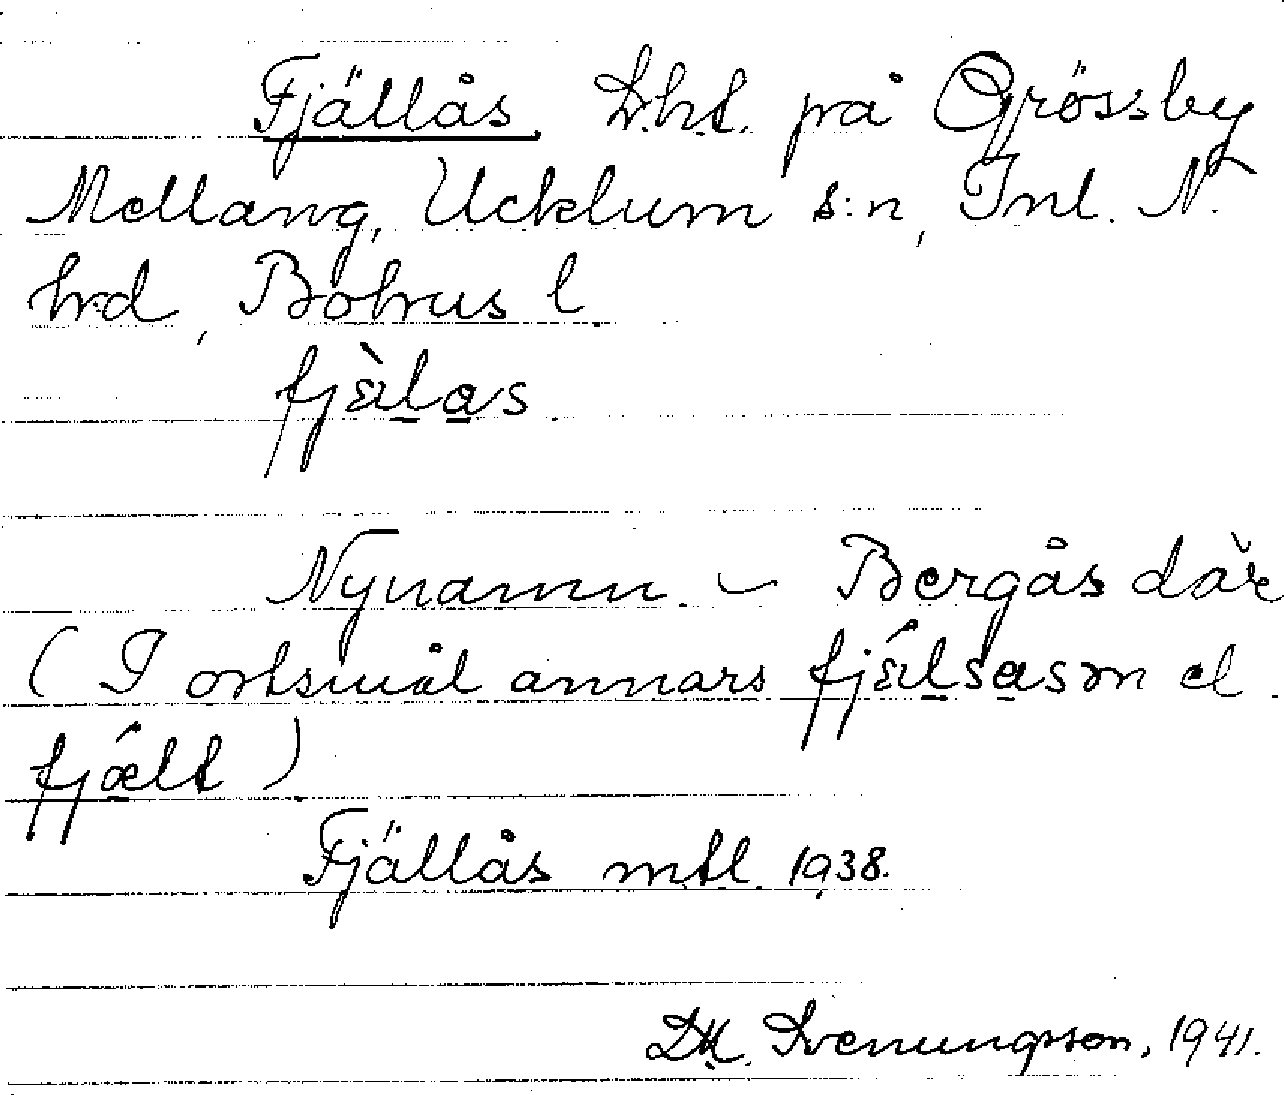 Fjällås. Lht. på Grössby
Mellang, Ucklum s:n, Inl. N.
hrd, Bohus l
fjɛ̀l̲a̲s
Nynamn. – Bergås där
(I ortsmål annars fjɛ́l̲sa̲sən el.
fjǽlt)
Fjällås mtl 1938.
Svenungsson, 1941.